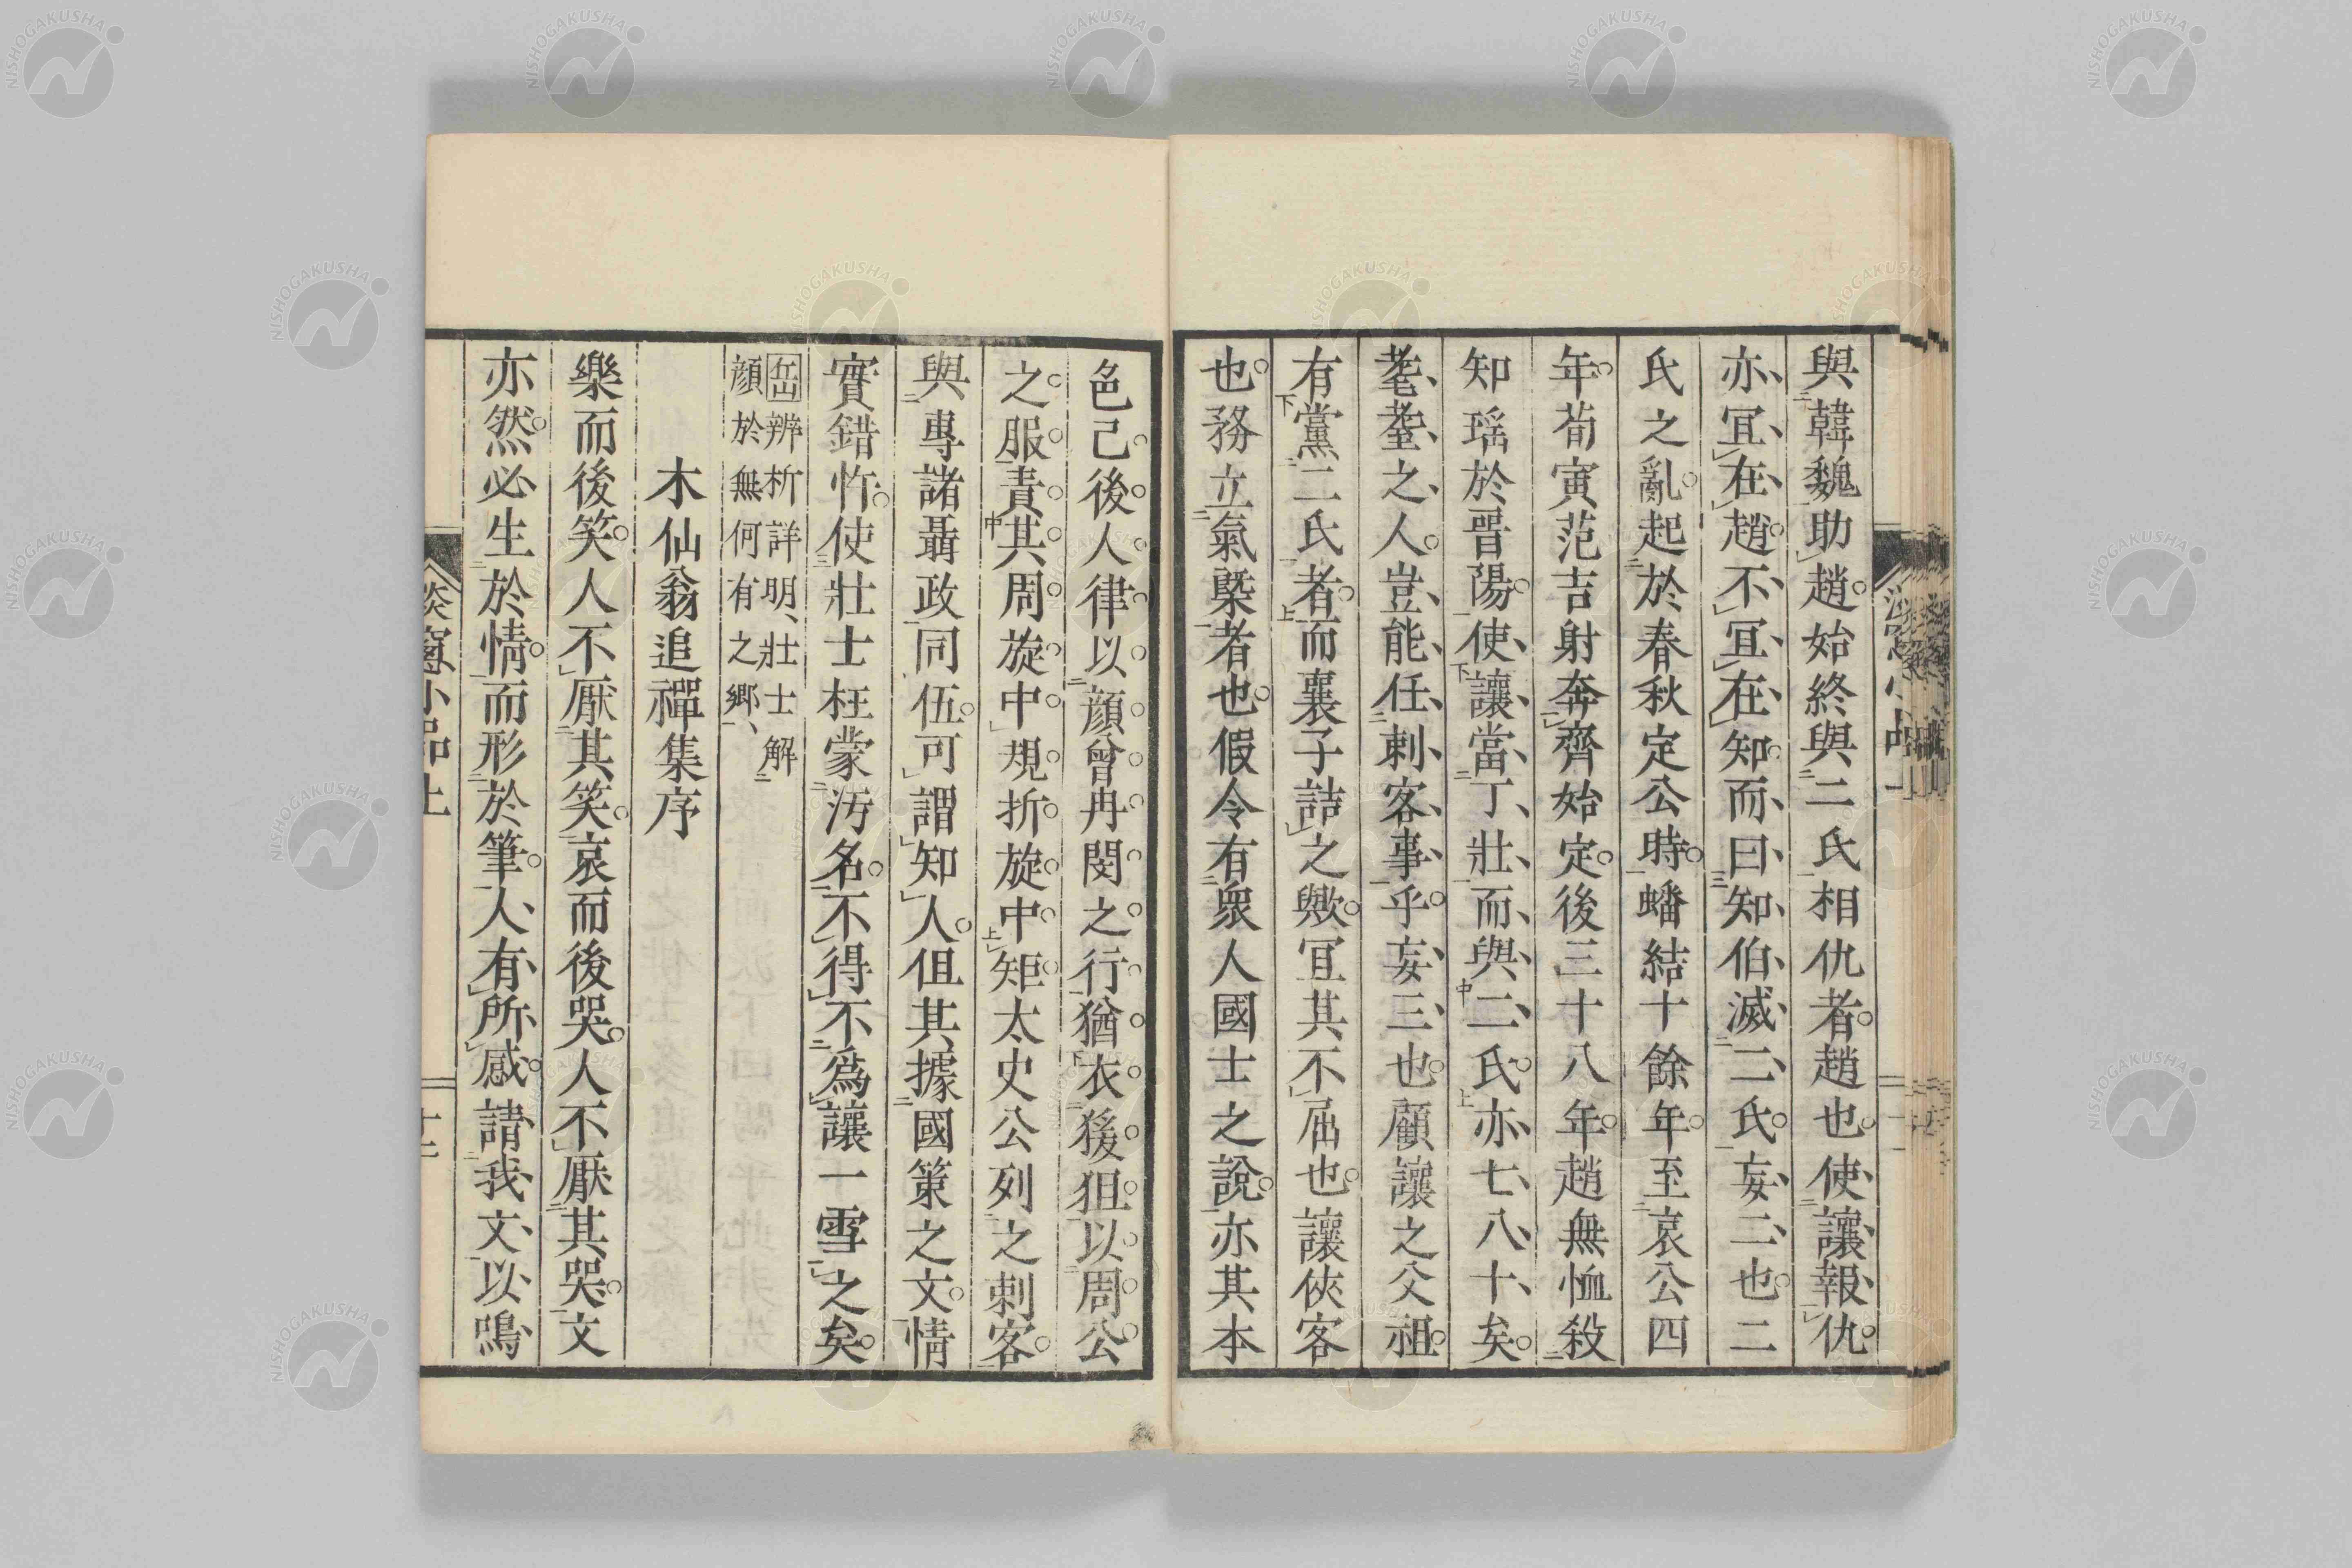 與韓魏助趙。始終與二氏相仇者。趙也。使讓報仇。
亦冝在趙。不冝在知。而曰知伯滅二氏。妄二也。二
氏之亂。起於春秋定公時。蟠結十餘年。至哀公四
年。荀寅范吉射奔齊始定。後三十八年。趙無恤殺
知瑤於晉陽。使讓當丁壯而與二氏。亦七八十矣。
耄耋之人。豈能任刺客事乎。妄三也。顧讓之父祖。
有黨二氏者。而襄子詰之歟。冝其不屈也。讓俠客
也。務立氣槩者也。假令有衆人國士之說。亦其本
色己。後人律以顏曾冉閔之行。猶衣猨狙以周公
之服。責其周旋中規。折旋中矩。太史公列之刺客。
與專諸聶政同伍。可謂知人。但其據國策之文。情
實錯忤。使壯士枉蒙汚名。不得不爲讓一雪之矣。
岳辨析詳明、壯士解
顏於無何有之郷、
木仙翁追禪集序
樂而後笑。人不厭其笑。哀而後哭。人不厭其哭。文
亦然。必生於情。而形於筆。人有所感。請我文以鳴